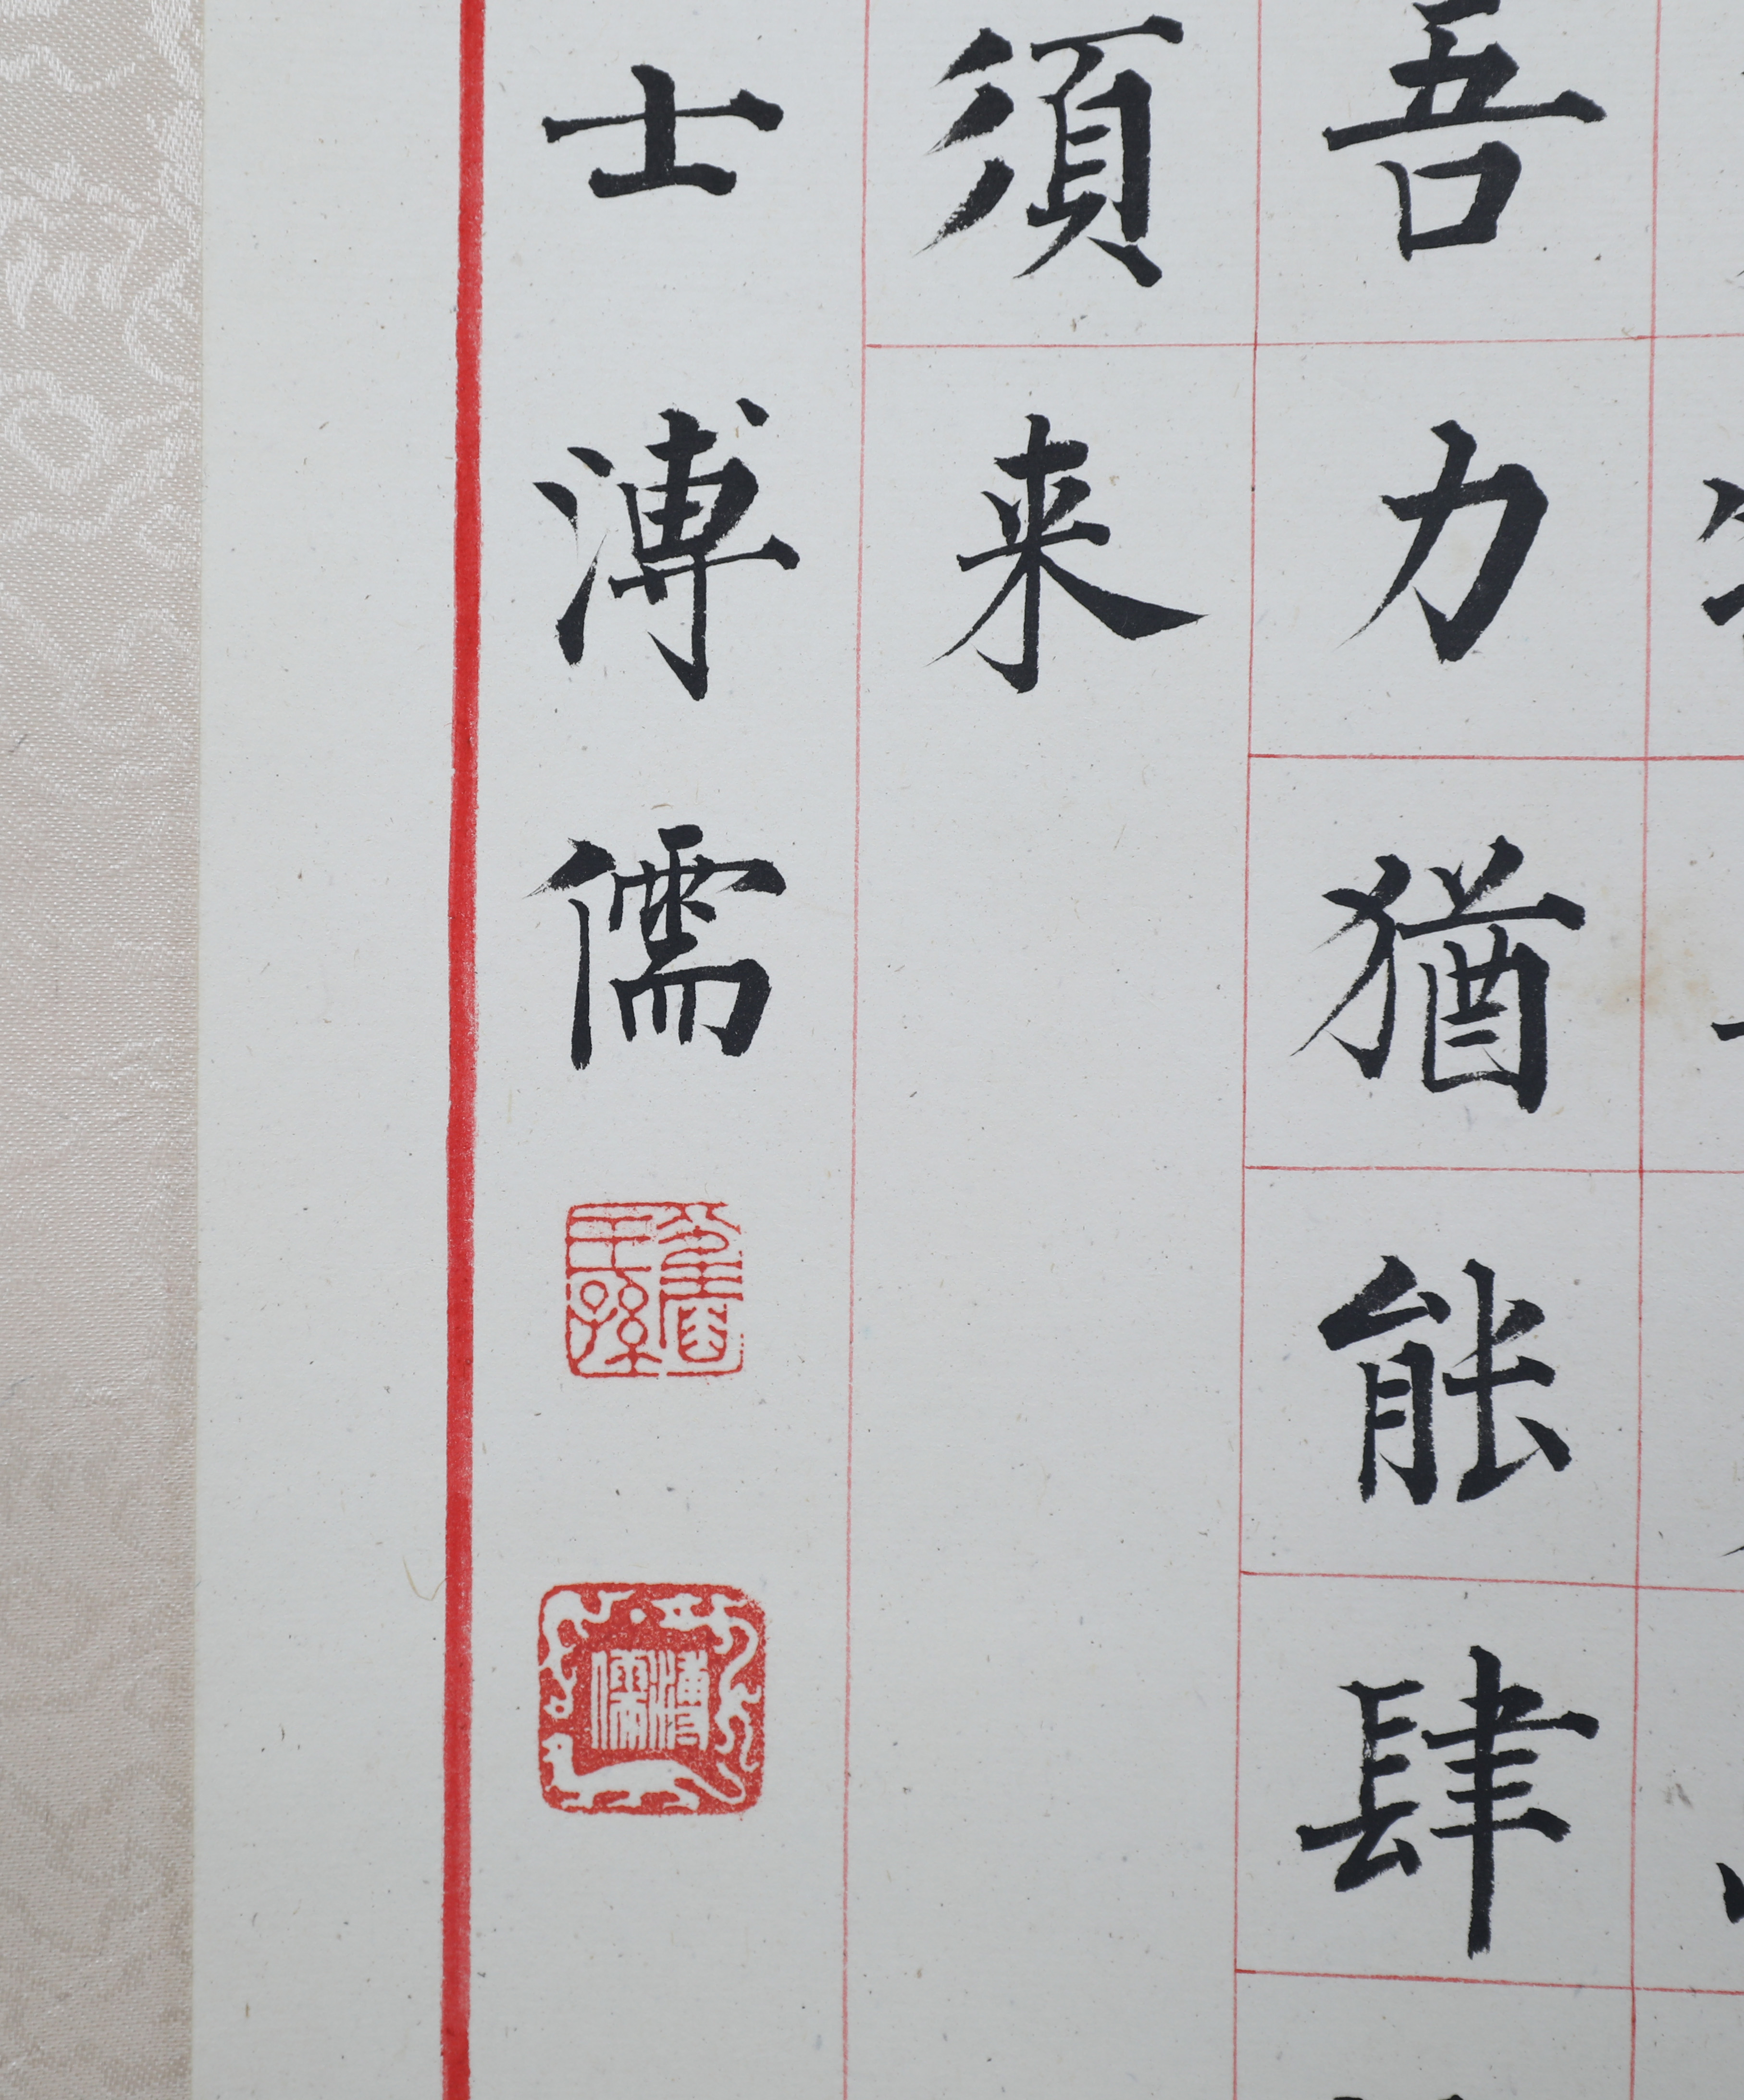 吾力猶能肆
須来
士溥儒
舊王孫
溥儒